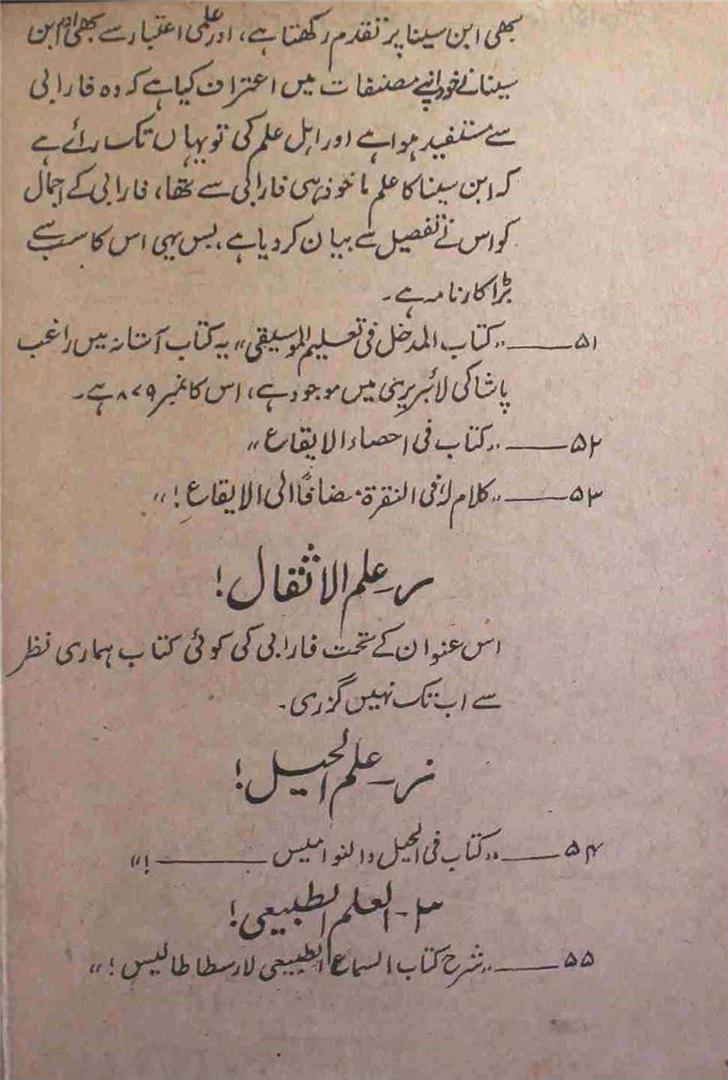 بھی ابن سینا پر تقدم رکھتا ہے، اور علمی اعتبار سے بھی ابن
سینا نے خود اپنے مصنفات میں اعتراف کیا ہے کہ وہ فارابی
سے مستفید ہوا ہے اور اہل علم کی تو یہاں تک رائے ہے
کہ ابن سینا کا علم ماخوذ ہی فارابی سے تھا، فارابی کے اجمال
کو اس نے تفصیل سے بیان کر دیا ہے، بس یہی اس کا سب سے
بڑا کارنامہ ہے۔
۵۱ــــــ "کتاب المدخل فی تعلیم الموسیقی" یہ کتاب آستانہ میں راغب
پاشا کی لائبریری میں موجود ہے، اس کا نمبر ۸۷۹ ہے۔
۵۲ــــــ "کتاب فی احصاء الایقاع"
۵۳ــــــ "کلام لہٗ فی النقرۃ مضافاً الی الایقاعِ!"
علم الاثقال!
اس عنوان کے تحت فارابی کی کوئی کتاب ہماری نظر
سے اب تک نہیں گزری۔
علم الحیل!
۵۴ــــــ "کتاب فی الحیل والنوامیس ــــــــــ!"
۳۔ العلم الطبیعی!
۵۵ــــــ "شرح کتاب السماع الطبیعی لارسطاطالیس!"